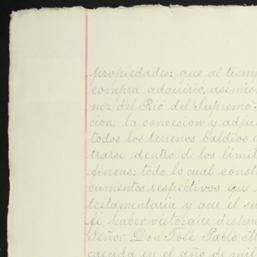 propiedades; que al tiemp
compra adquirió, asimis
nez del Rio del Supremo
cion, la concesion y adju
todos los terrenos baldios
trarse dentro de los limi
fincas; todo lo cual const
cumentos respectivos que
testamentaria y que el su
fé haber visto; que despu
Señor Don José Pablo M
cienda en el año de mil